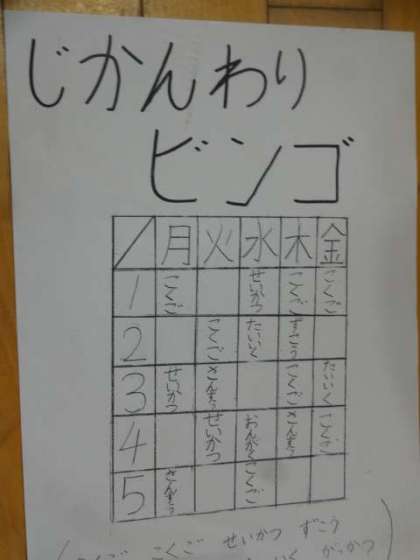 じかんわり
ビンゴ
月 火 水 木 金
1 こくご せいかつ こくご こくご
2 こくご たいいく
3 せいかつ さんすう こくご たいいく
4 せいかつ おんがく さんすう こくご
5 さんすう こくご
こくご せいかつ ずこう